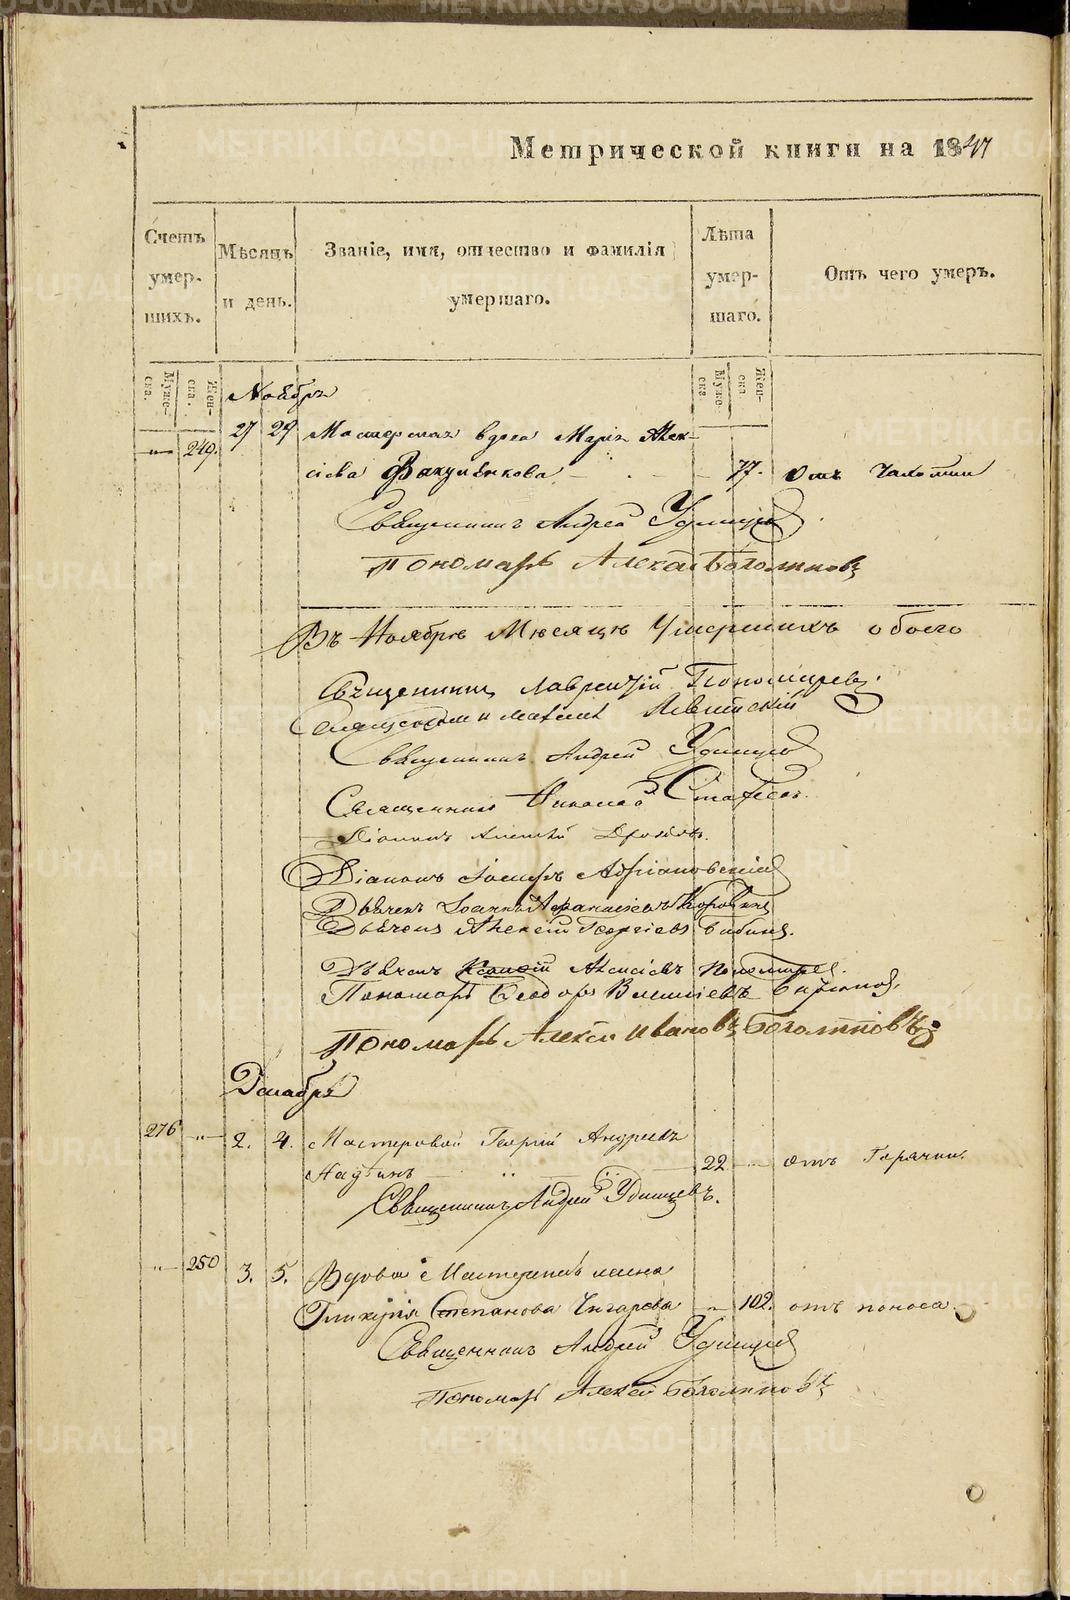 Метрической книги на 1847
Счетъ умер- шихъ.
Мѣсяцъ и день.
Званіе, имя, отчество и фамилія умершаго.
Лѣта умер- шаго.
Отъ чего умеръ.
Муже- ска.
Жен- ска.
Муже- ска
Жен- ска
Ноябрь
249. 27 29 вдова Марія Алек-
сіева Вакуленкова 77. Отъ
Священникъ Андрей Удинцовъ
Пономарь Алексѣй Боголѣповъ
Въ Ноябрѣ Мѣсяцѣ Умершихъ обоего
Священникъ Лаврентій Пономаревъ.
Священникъ Андрей Удинцовъ
Священникъ Николай
Діаконъ Алексѣй
Діаконъ Іосифъ Адріановскій
Дьячекъ Іоаннъ Афанасіевъ Коровинъ
Дьячекъ Алексѣй Георгіевъ Бибинъ.
Дьячекъ Алексіевъ Пономаревъ.
Пономарь Ѳеодоръ Васильевъ
Пономарь Алексѣй Ивановъ Боголѣповъ
Декабрь
276 2. 4. Мастеровой Георгій Андреевъ
22 отъ Горячки.
Священникъ Андрей Удинцевъ.
250 3. 5. Вдова Мастерская жена
Гликерія Степанова 102. отъ поноса.
Священникъ Андрей Удинцовъ
Пономарь Алексѣй Боголѣповъ
METRIKI.GASO-URAL.RU